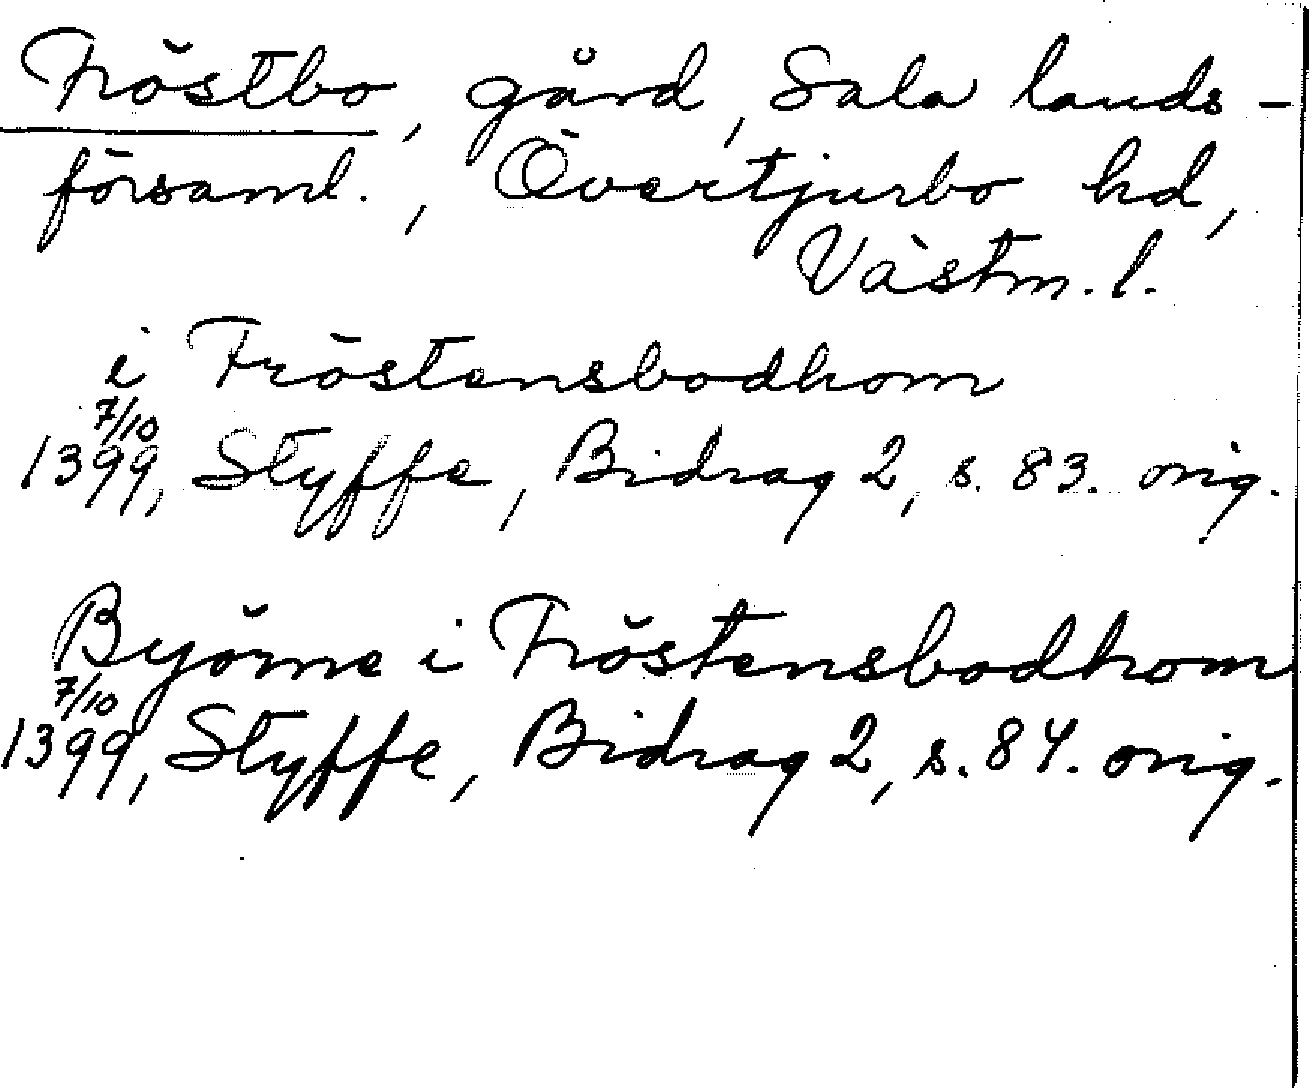 Fröstbo, gård, Sala lands-
församl., Övertjurbo hd,
Västm. l.
i Fröstensbodhom
7/10
1399, Styffe, Bidrag 2, s. 83. orig.
Byörne i Fröstensbodhom
7/10
1399, Styffe, Bidrag 2, s. 84. orig.